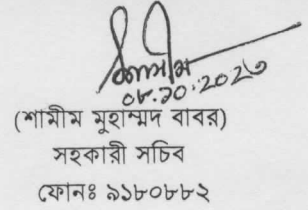 ০৮.১০.২০২৩
(শামীম মুহাম্মদ বাবর)
সহকারী সচিব
ফোনঃ ৯১৮০৮৮২